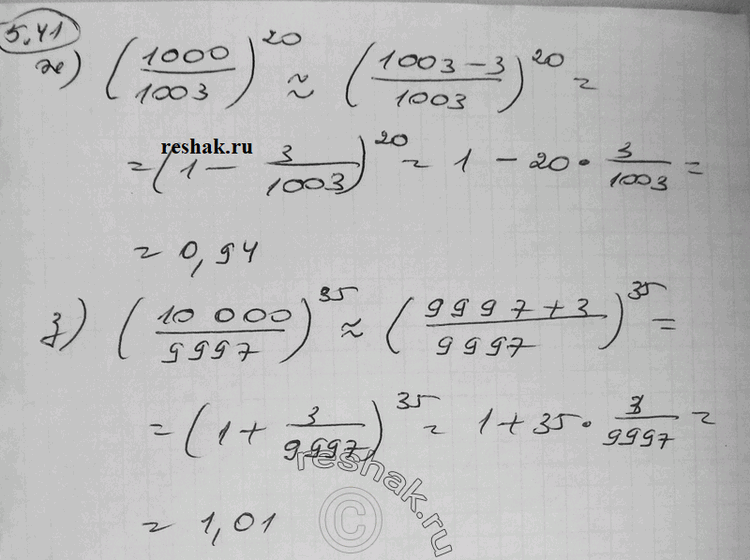 5.41
ж) (1000/1003)^20 ≈ ((1003-3)/1003)^20 =
reshak.ru
= (1 - 3/1003)^20 = 1 - 20 · 3/1003 =
= 0,94
з) (10 000/9997)^35 ≈ ((9997+3)/9997)^35 =
= (1 + 3/9997)^35 = 1 + 35 · 3/9997 =
reshak.ru
©
= 1,01